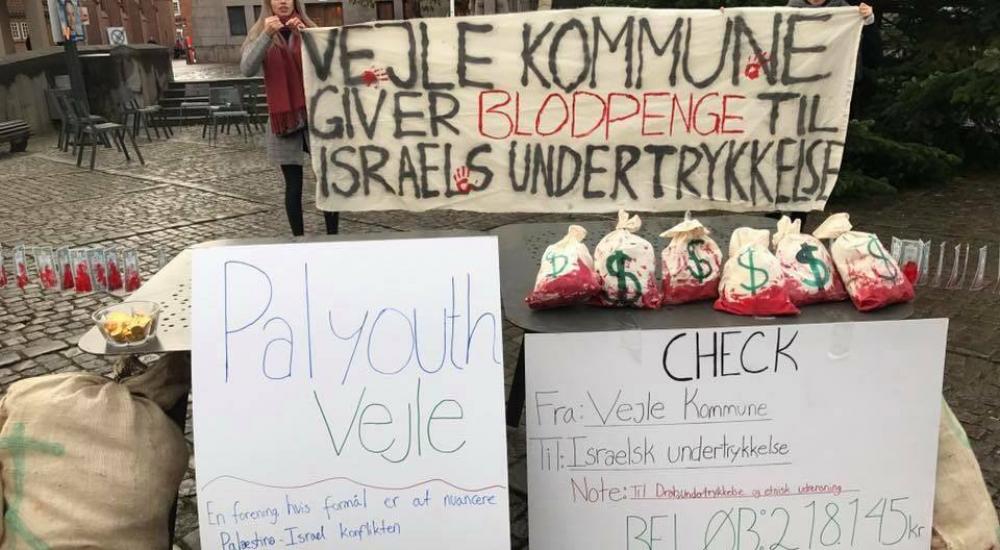 VEJLE KOMMUNE
GIVER BLODPENGE TIL
ISRAELS UNDERTRYKKELSE
$ $ $ $ $ $
Palyouth
Vejle
En forening hvis formål er at nuancere
Palæstina-Israel konflikten
CHECK
Fra: Vejle Kommune
Til: Israelsk undertrykkelse
Note: Til undertrykkelse og etnisk udrensning
BELØB: 218.145 kr